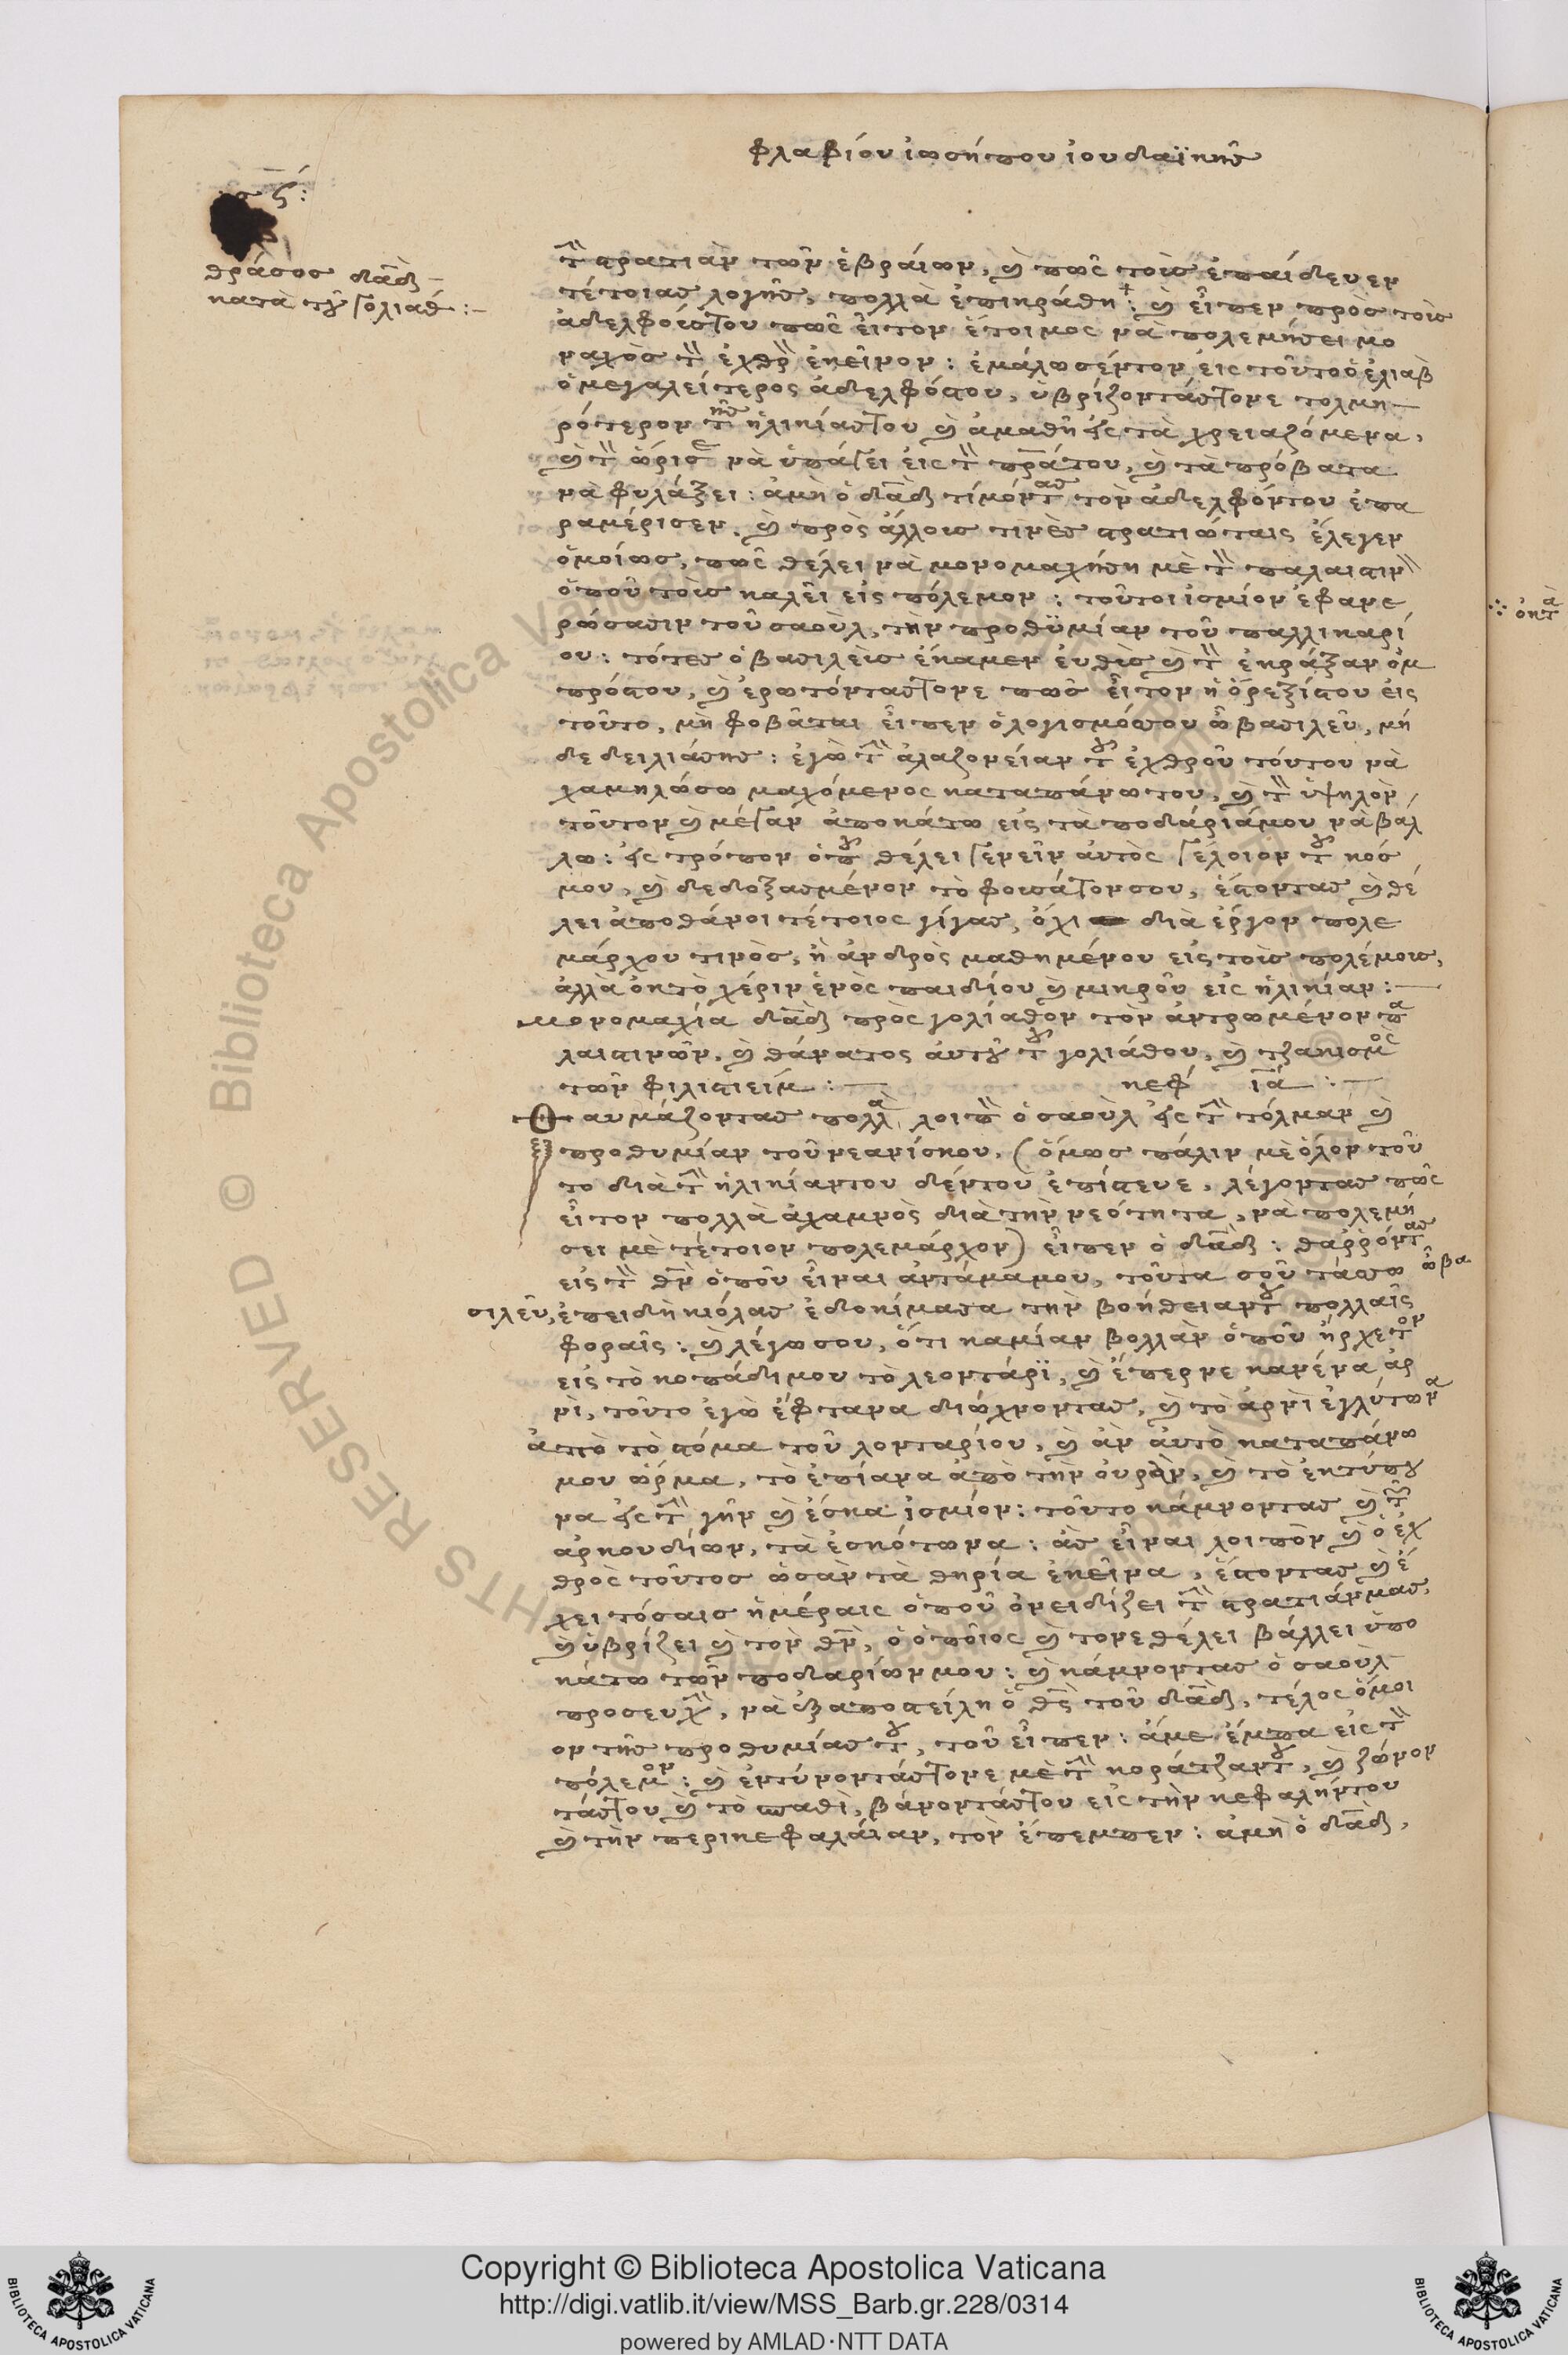 φλαβίου ἰωσήπου ἰουδαϊκῆς
ϛ́:
θράσος δα̅δ̅ –
κατὰ τοῦ γολιαθ :–
τ̅ στρατιὰν τῶν ἑβραίων, καὶ πῶς τοὺς ἐπαίδευεν
τέτοιας λογῆς, πολλὰ ἐπικράθη: καὶ εἶπεν πρὸς τοὺς
ἀδελφούς του πῶς εἶτον ἕτοιμος νὰ πολεμήσει μο
ναχὸς τ̅ ἐχθρ̅ ἐκεῖνον: ἐμάλωσέν τον εἰς τοῦτο ὁ ἐλιαβ
ὁ μεγαλείτερος ἀδελφός του, ὑβρίζοντάς τονε τολμη–
ρότερον τῆς ἡλικίας του καὶ ἀμαθῆ εἰς τὰ χρειαζόμενα,
καὶ τ̅ ὥρισε νὰ ὑπάγει εἰς τ̅ π̅ρ̅α̅ του, καὶ τὰ πρόβατα
νὰ φυλάξει: ἀμὴ ὁ δα̅δ̅ τιμόντας τὸν ἀδελφόν του ἐπα
ραμέρισεν. καὶ πρὸς ἄλλους τινὲς στρατιώταις ἔλεγεν
ὁμοίως, πῶς θέλει νὰ μονομαχήση μὲ τ̅ παλαιστιν̅
ὁποῦ τοὺς καλεῖ εἰς πόλεμον: τοῦτοι ἰσμίον ἐφανε
ρώσασιν τοῦ σαοὺλ, τὴν προθϋμίαν τοῦ παλλικαρί
ου: τότες ὁ βασιλεὺς ἔκαμεν εὐθὺς καὶ τ̅ ἐκράξαν ὀμ
πρός του, καὶ ἐρωτόντας τονε πῶς εἶτον ἡ ὄρεξίς του εἰς
τοῦτο, μὴ φοβᾶται εἶπεν ὁ λογισμός σου ὦ βασιλεῦ, μή
δε δειλιάσης: ἐγὼ τ̅ ἀλαζονείαν τοῦ ἐχθροῦ τούτου νὰ
χαμηλώσω μαχόμενος καταπάνω του, καὶ τ̅ ὑψηλὸν
τοῦτον καὶ μέγαν ἀποκάτω εἰς τὰ ποδάριά μου νὰ βάλ
λω: εἰς τρόπον ὁποῦ θέλει γενεῖν αὐτὸς γέλοιον τοῦ κόσ
μου, καὶ δεδοξασμένον τὸ φουσάτον σου, ἔστοντας καὶ θέ
λει ἀποθάνοι τέτοιος γίγας, ὄχι διὰ ἔργον πολε
μάρχου τινὸς, ἢ ἀνδρὸς μαθημένου εἰς τοὺς πολέμους,
ἀλλὰ ὀκ τὸ χέριν ἑνὸς παιδίου καὶ μικροῦ εἰς ἡλικίαν :—
Μονομαχία δα̅δ̅ πρὸς γολίαθον τὸν ἀντρωμένον πα
λαιστινῶν, καὶ θάνατος αὐτοῦ τοῦ γολιάθου, καὶ τζακισμὸς
τῶν φιλιστιείμ :— κεφ ι̅α̅ :—
Θαυμάζοντας πολλὰ λοιπ̅ ὁ σαοὺλ εἰς τ̅ τόλμαν καὶ
προθυμίαν τοῦ νεανίσκου, (ὅμως πάλιν μὲ ὅλον τοῦ
το διὰ τ̅ ἡλικίαν του δέν του ἐπίστευε, λέγοντας πῶς
εἶτον πολλὰ ἀχαμνὸς διὰ τὴν νεότητα, νὰ πολεμή
σει μὲ τέτοιον πολέμαρχον) εἶπεν ὁ δα̅δ̅: θαῤῥόντας
εἰς τ̅ θ̅ν̅ ὁποῦ εἶναι ἀντάμα μου, τοῦτα σοῦ τάσσω ὦ βα
σιλεῦ, ἐπειδὴ κιόλας ἐδοκίμασα τὴν βοήθειαν του πολλαῖς
φοραῖς: καὶ λέγω σου, ὅτι καμίαν βολλὰν ὁποῦ ἤρχετον
εἰς τὸ κοπάδι μου τὸ λεοντάρϊ, καὶ ἔπερνε κανένα ἀρ
νὶ, τοῦτο ἐγὼ ἔφτανα διώχνοντας, καὶ τὸ ἀρνὶ ἐγλύτωνα
ἀπὸ τὸ στόμα τοῦ λονταρίου, καὶ ἂν αὐτὸ καταπάνω
μου ὥρμα, τὸ ἐπίανα ἀπὸ τὴν οὐρὰν, καὶ τὸ ἐκτύπου
να εἰς τ̅ γῆν καὶ ἔσκα ἰσμίον: τοῦτο κάμνοντας καὶ τ̅
ἀρκουδίων, τὰ ἐσκότωνα: ἂς εἶναι λοιπὸν καὶ ὁ ἐχ
θρὸς τοῦτος ὡσὰν τὰ θηρία ἐκεῖνα, ἔστοντας καὶ ἔ
χει τόσαις ἡμέραις ὁποῦ ὀνειδίζει τ̅ στρατιάν μας,
καὶ ὑβρίζει καὶ τὸν θ̅ν̅, ὁ ὁποῖος καὶ τονε θέλει βάλλει ὑπο
κάτω τῶν ποδαρίων μου: καὶ κάμνοντας ὁ σαοὺλ
προσευχ̅, νὰ ἐξαποστείλη ὁ θ̅ς̅ τοῦ δα̅δ̅, τέλος ὅμοι
ον τῆς προθυμίας του, τοῦ εἶπεν: ἄμε ἔμπα εἰς τ̅
πόλεμον: καὶ ἐντύνοντάς τονε μὲ τ̅ κοράτζαν του, καὶ ζώνον
τάς του καὶ τὸ σπαθὶ, βάνοντάς του εἰς τὴν κεφαλήν του
καὶ τὴν περικεφαλαίαν, τὸν ἔπεμπεν: ἀμὴ ὁ δα̅δ̅,
Copyright © Biblioteca Apostolica Vaticana
http://digi.vatlib.it/view/MSS_Barb.gr.228/0314
powered by AMLAD·NTT DATA